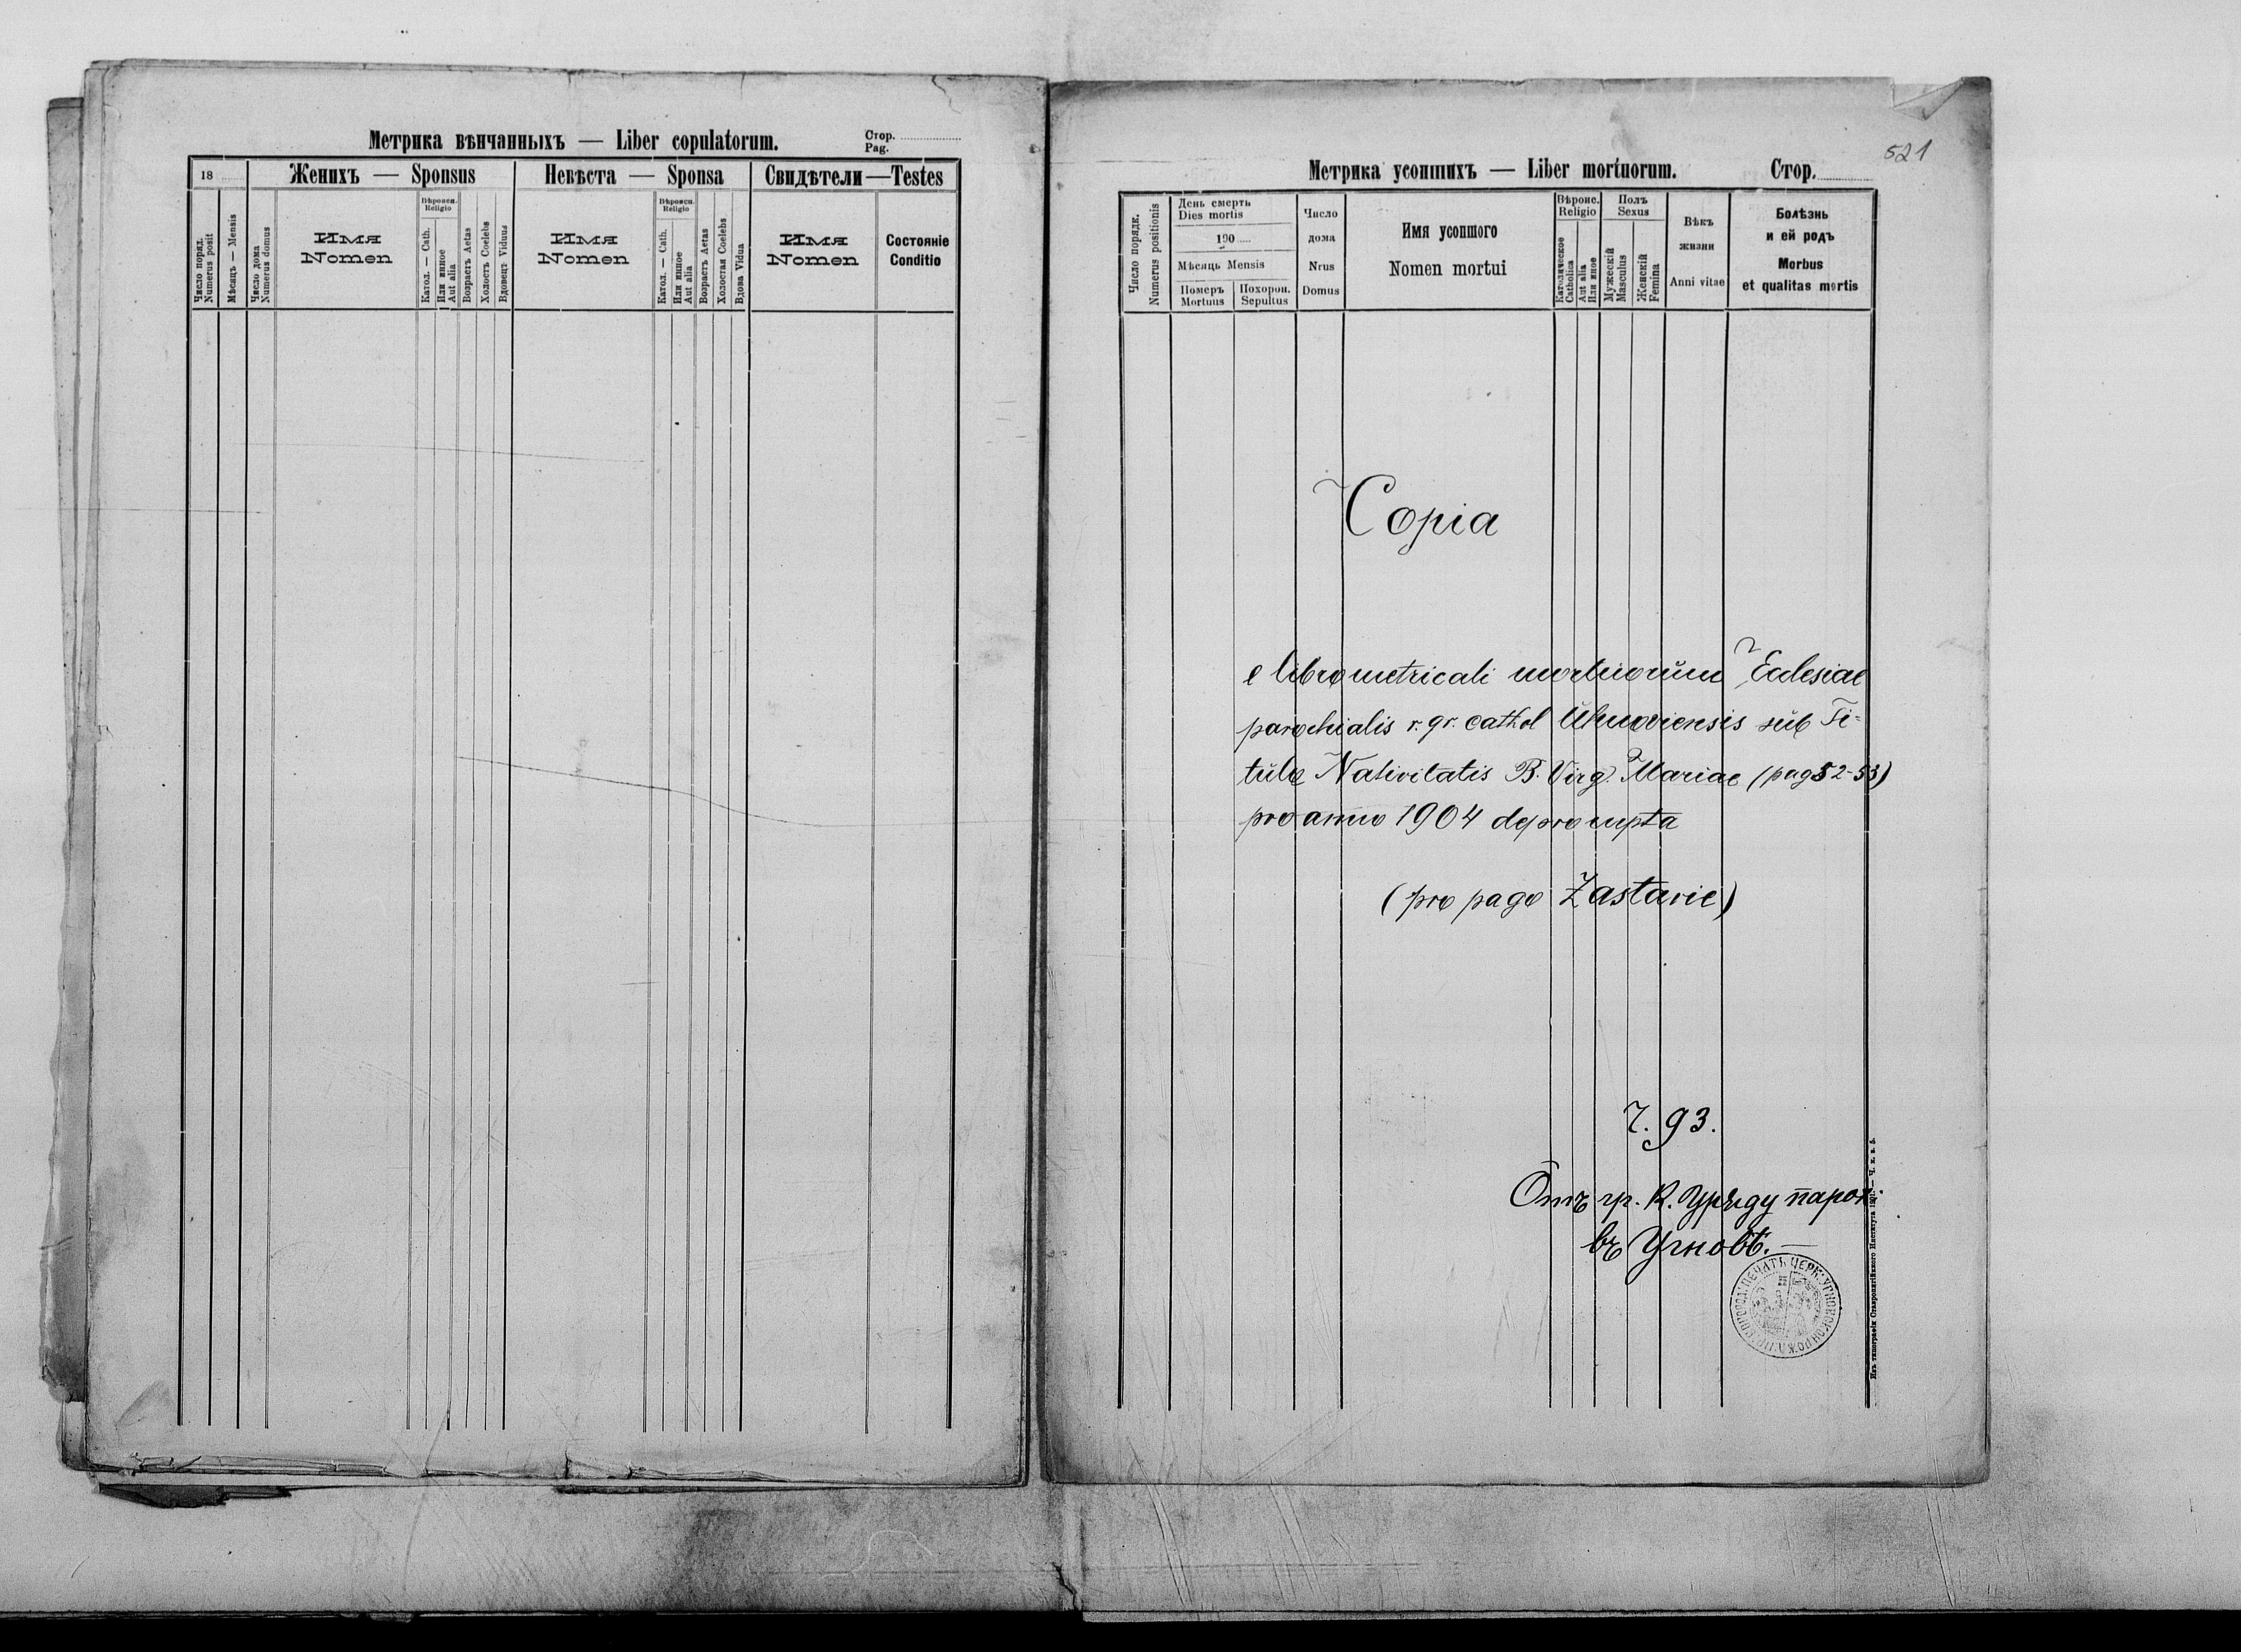 Метрика вѣнчанныхъ — Liber copulatorum.
Стор.
Pag.
18
Женихъ — Sponsus
Невѣста — Sponsa
Свидѣтели—Testes
Число поряд.
Numerus posit
Мѣсяцъ — Mensis
Число дома
Numerus domus
Имя
Nomen
Вѣроисп.
Religio
Катол. — Cath.
Или иное
Aut alia
Возрастъ Aetas
Холостъ Coelebs
Вдовецъ Viduus
Имя
Nomen
Вѣроисп.
Religio
Катол. — Cath.
Или иное
Aut alia
Возрастъ Aetas
Холостая Coelebs
Вдова Vidua
Имя
Nomen
Состояніе
Conditio
521
Метрика усопшихъ — Liber mortuorum.
Стор.
Число порядк.
Numerus positionis
День смерть
Dies mortis
190
Мѣсяць Mensis
Померъ
Mortuus
Похорон.
Sepultus
Число
дома
Nrus
Domus
Имя усопшого
Nomen mortui
Вѣроис.
Religio
Католическое
Catholica
Aut alia
Или иное
Полъ
Sexus
Мужескій
Masculus
Женскій
Femina
Вѣкъ
жизни
Anni vitae
Болѣзнь
и ей родъ
Morbus
et qualitas mortis
Copia
e libro metricali mortuorŭm Ecclesiae
parochialis r. gr. cathol Uhnoviensis sŭb Ti=
tŭlo Nativitatis B. Virg. Mariae (pag 52-53)
pro anno 1904 deprompta
(pro pago Zastavie)
Ч. 93.
Отъ гр. к. Уряду парох.
въ Угновѣ. —
Изъ типографіи Ставропигійского Института